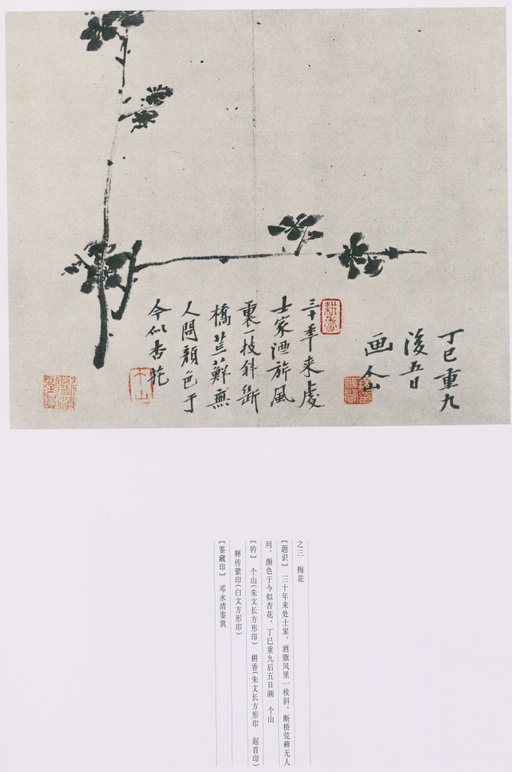 丁巳重九
後五日
画 个山
三十年来處
士家酒旂風
裏一枝斜斷
橋荒蘚無
人問顏色于
今似杏花
耕香
个山
之三 梅花
【题识】 三十年来处士家，酒旗风里一枝斜，断桥荒藓无人
问，颜色于今似杏花。丁巳重九后五日画 个山
【钤】 个山（朱文长方形印） 耕香（朱文长方形印 起首印）
释传綮印（白文方形印）
【鉴藏印】 邓永清鉴赏